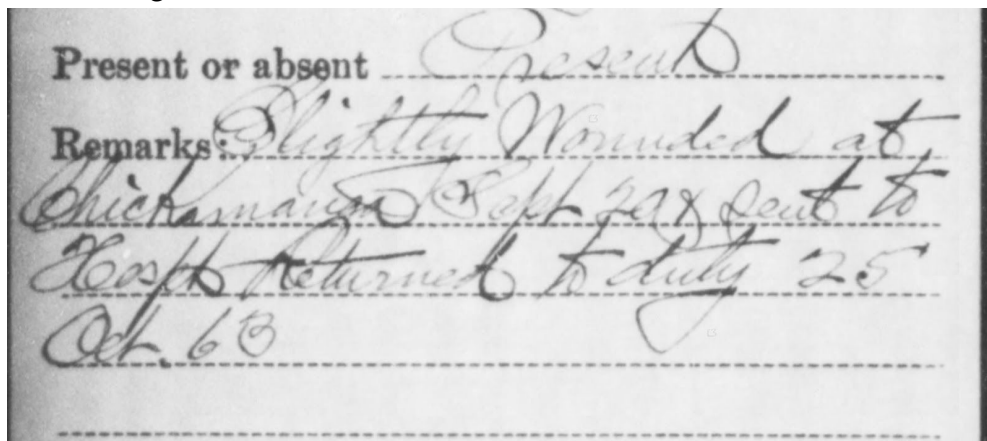 Present or absent Present
Remarks: Slightly Wounded at
Chickamauga Sept 20 & sent to
Hospt Returned to duty 25
Oct. 63